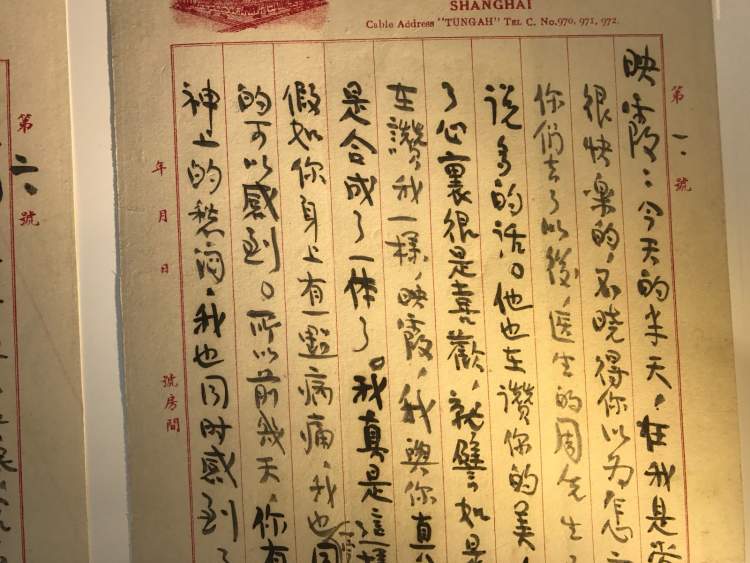 SHANGHAI
Cable Address "TUNGAH" TEL C. No.970, 971, 972.
第一號
映霞：今天的半天，在我是
很快樂的，不曉得你以为怎
你们去了以後，医生的周先生
说多的话。他也在讚你的美，
了心裏很是喜歡，就譬如是
在讚我一樣，映霞，我與你真
是合成了一体了。我真是這樣
假如你身上有一點病痛，我也同
的可以感到。所以前幾天，你有
神上的愁悶，我也同时感到了
年月日
號房間
第二號